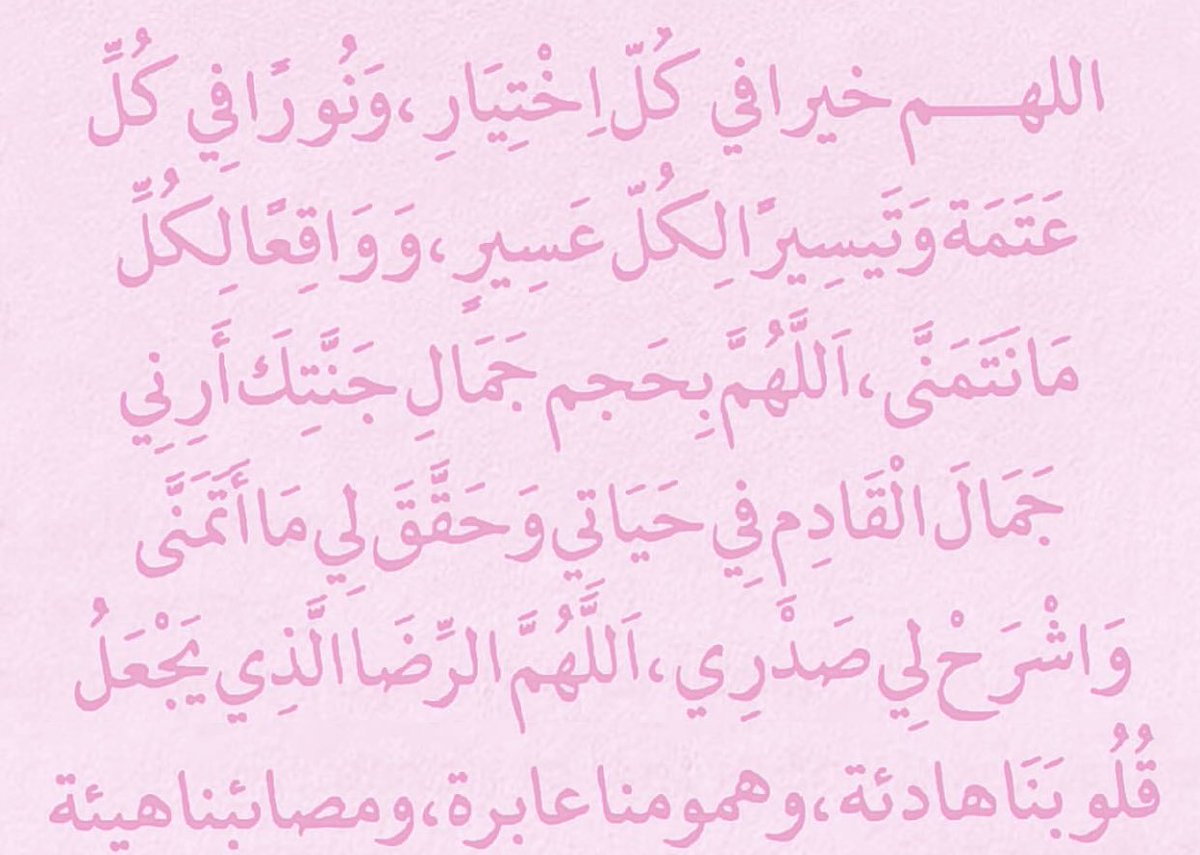 اللهـــــم خيرا في كُلّ اِخْتِيَارِ ،وَنُورًا فِي كُلِّ
عَتَمَة وَتَيسِيرًا لِكُلّ عَسِيرٍ ،وَ وَاقِعًا لِكُلِّ
مَا نَتَمَنَّى ،اَللَّهُمَّ بِحَجم جَمَالِ جَنَّتِكَ أَرِنِي
جَمَالَ الْقَادِم فِي حَيَاتي وَحَقَّقَ لِي مَا أَتَمَنَّى
وَاشْرَحْ لِي صَدْرِي ،اَللَّهُمَّ الرِّضَا الَّذِي يَجْعَلُ
قُلُوبَنَا هادئة ،وهمومنا عابرة ،ومصائبنا هيئة